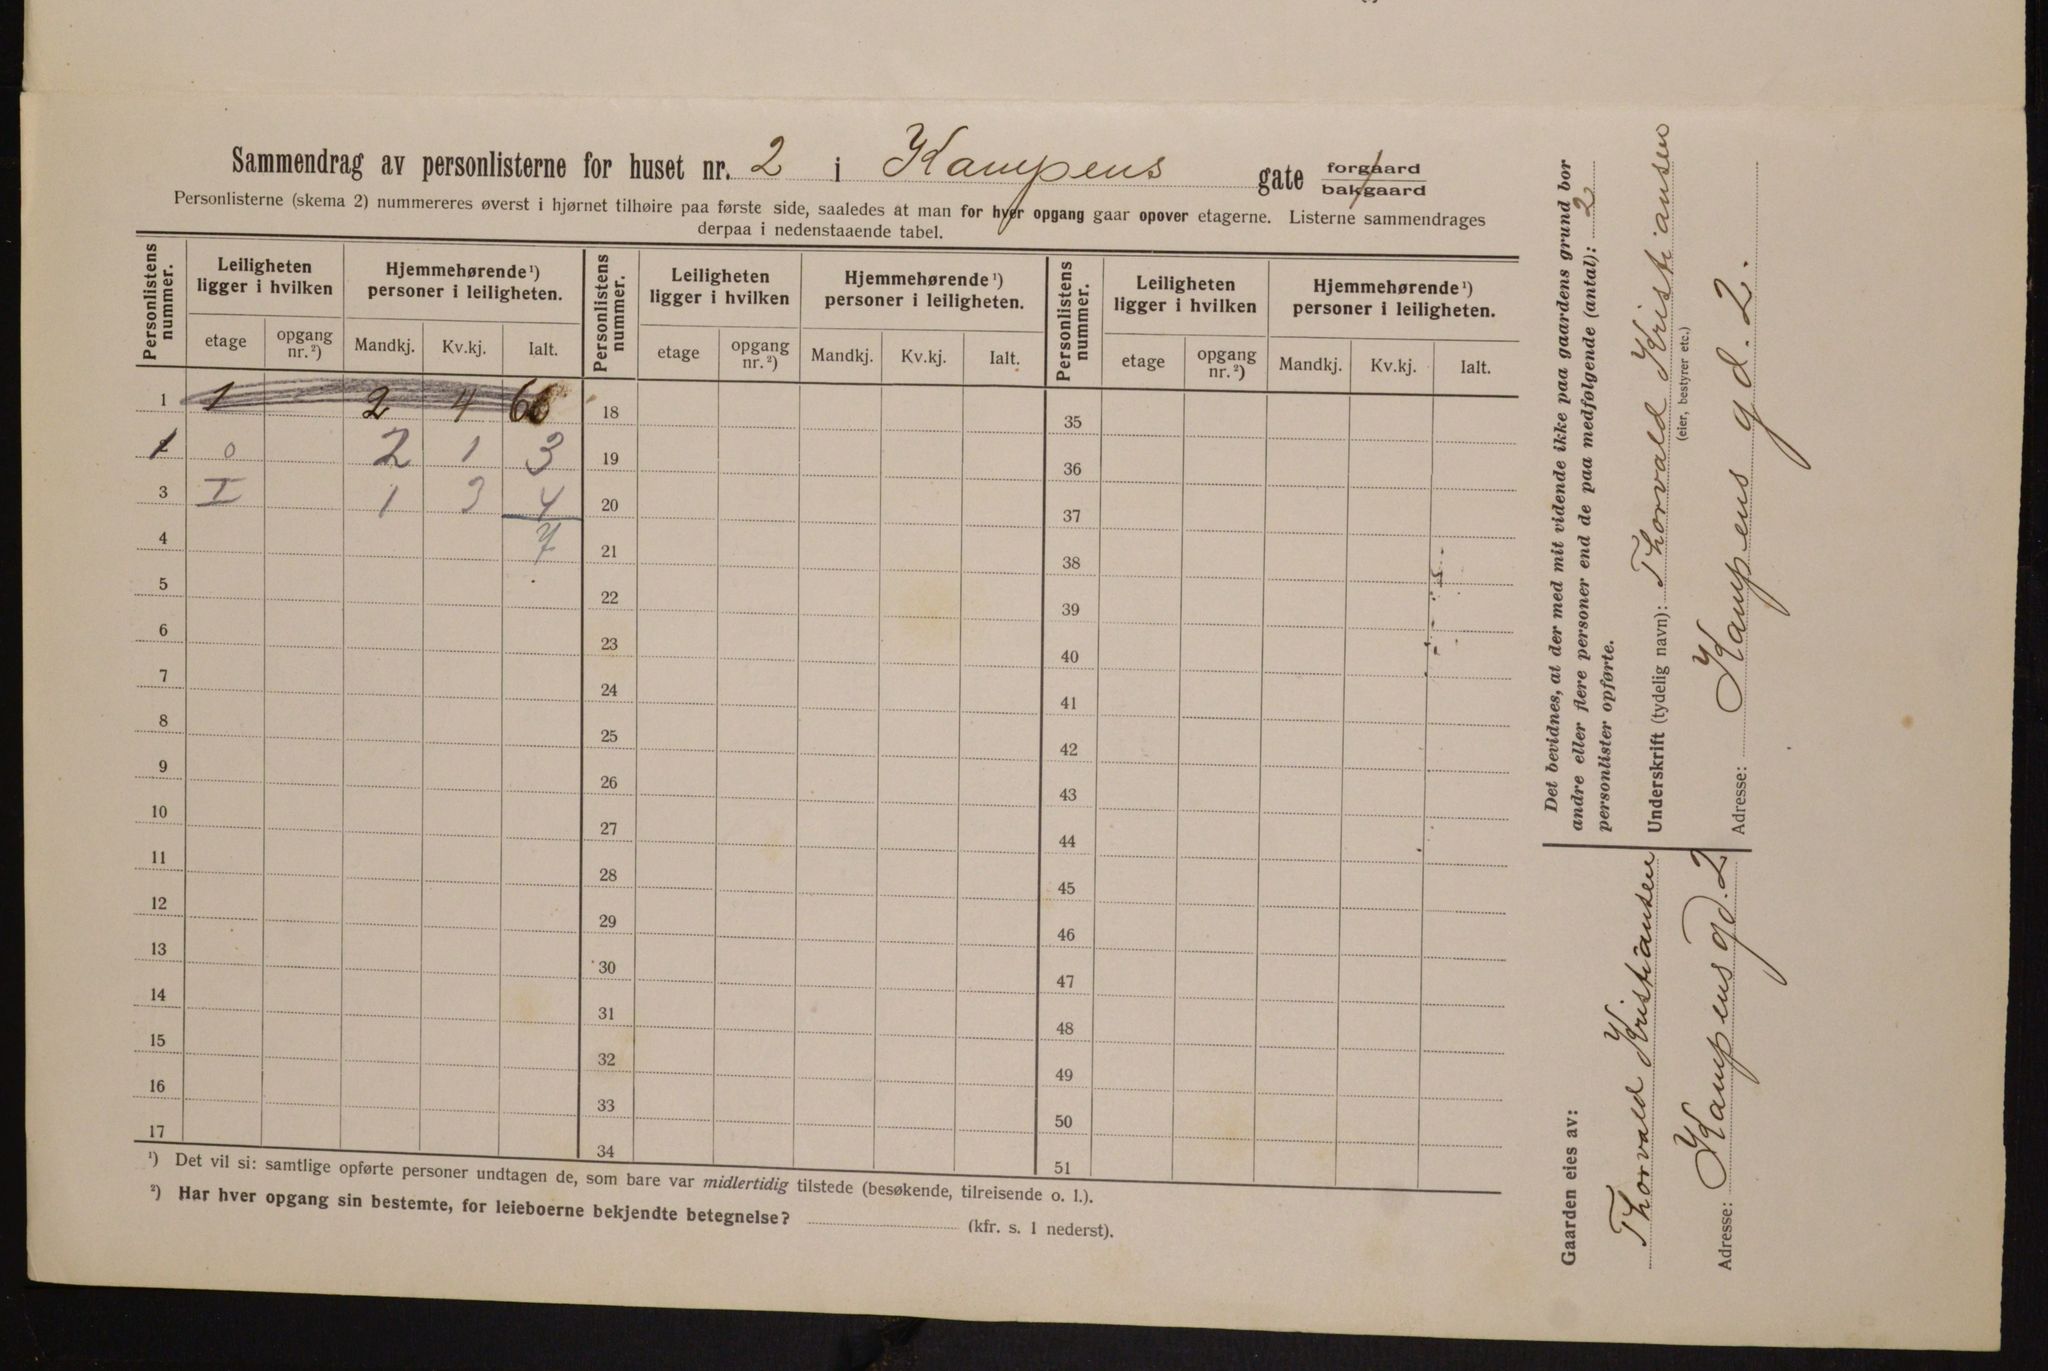 Sammendrag av personlisterne for huset nr. 2 i Kampens gate forgaard bakgaard
Personlisterne (skema 2) nummereres øverst i hjørnet tilhøire paa første side, saaledes at man for hver opgang gaar opover etagerne. Listerne sammendrages
derpaa i nedenstaaende tabel.
Personlistens nummer. Leiligheten ligger i hvilken Hjemmehørende ¹) personer i leiligheten. Personlistens nummer. Leiligheten ligger i hvilken Hjemmehørende ¹) personer i leiligheten. Personlistens nummer. Leiligheten ligger i hvilken Hjemmehørende ¹) personer i leiligheten.
etage opgang nr. ²) Mandkj. Kv.kj. Ialt. etage opgang nr. ²) Mandkj. Kv.kj. Ialt. etage opgang nr. ²) Mandkj. Kv.kj. Ialt.
1 1 2 4 6 18 35
1 0 2 1 3 19 36
3 I 1 3 4 20 37
4 7 21 38
5 22 39
6 23 40
7 24 41
8 25 42
9 26 43
10 27 44
11 28 45
12 29 46
13 30 47
14 31 48
15 32 49
16 33 50
17 34 51
¹) Det vil si: samtlige opførte personer undtagen de, som bare var midlertidig tilstede (besøkende, tilreisende o. l.).
²) Har hver opgang sin bestemte, for leieboerne bekjendte betegnelse? (kfr. s. 1 nederst).
Det bevidnes, at der med mit vidende ikke paa gaardens grund bor
andre eller flere personer end de paa medfølgende (antal): 2
personlister opførte.
Underskrift (tydelig navn): Thorvald Kristiansen
(eier, bestyrer etc.)
Adresse: Kampens gd. 2.
Gaarden eies av:
Thorvald Kristiansen
Adresse: Kampens gd. 2